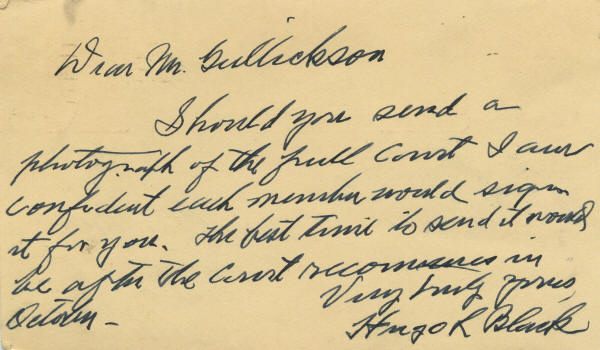 Dear Mr. Gullickson
Should you send a
photograph of the full Court I am
confident each member would sign
it for you. The best time to send it would
be after the Court reconvenes in
October –
Very truly yours,
Hugo L Black